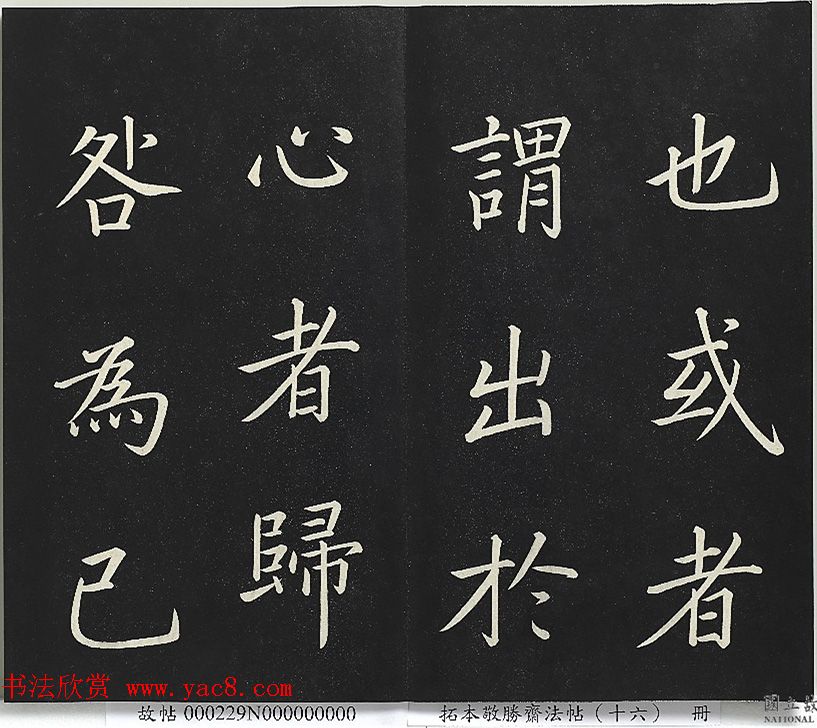 也或者
謂出於
心者歸
咎為已
书法欣赏 www.yac8.com
故帖 000229N000000000
拓本敬勝齋法帖（十六） 冊
國立故
NATIONAL